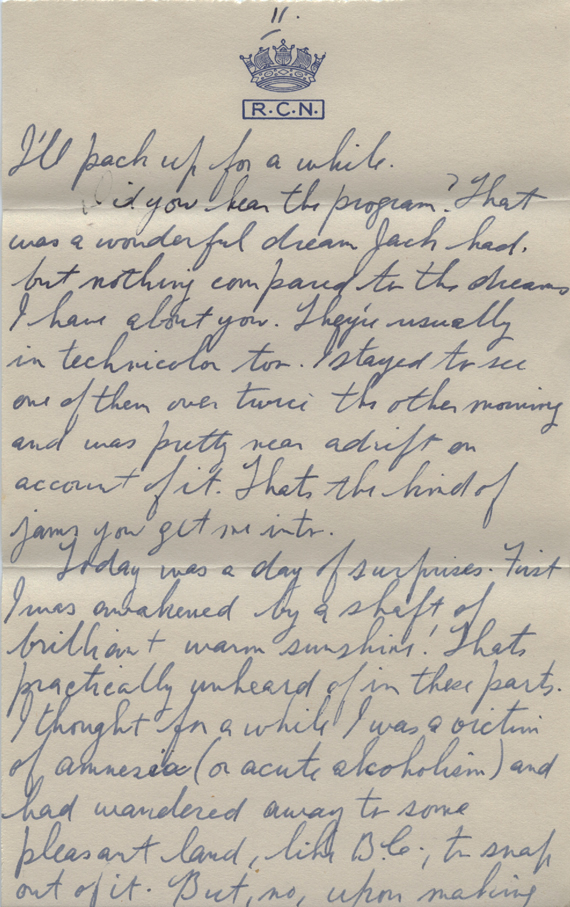 11.
R.C.N.
I'll pack up for a while.
Did you hear the program? That
was a wonderful dream Jack had.
but nothing compared to the dreams
I have about you. They're usually
in technicolor too. I stayed to see
one of them over twice the other morning
and was pretty near adrift on
account of it. Thats the kind of
jams you get me into.
Today was a day of surprises. First
I was awakened by a shaft of
brilliant warm sunshine! Thats
practically unheard of in these parts.
I thought for a while I was a victim
of amnesia (or acute alcoholism) and
had wandered away to some
pleasant land, like B.C., to snap
out of it. But, no, upon making